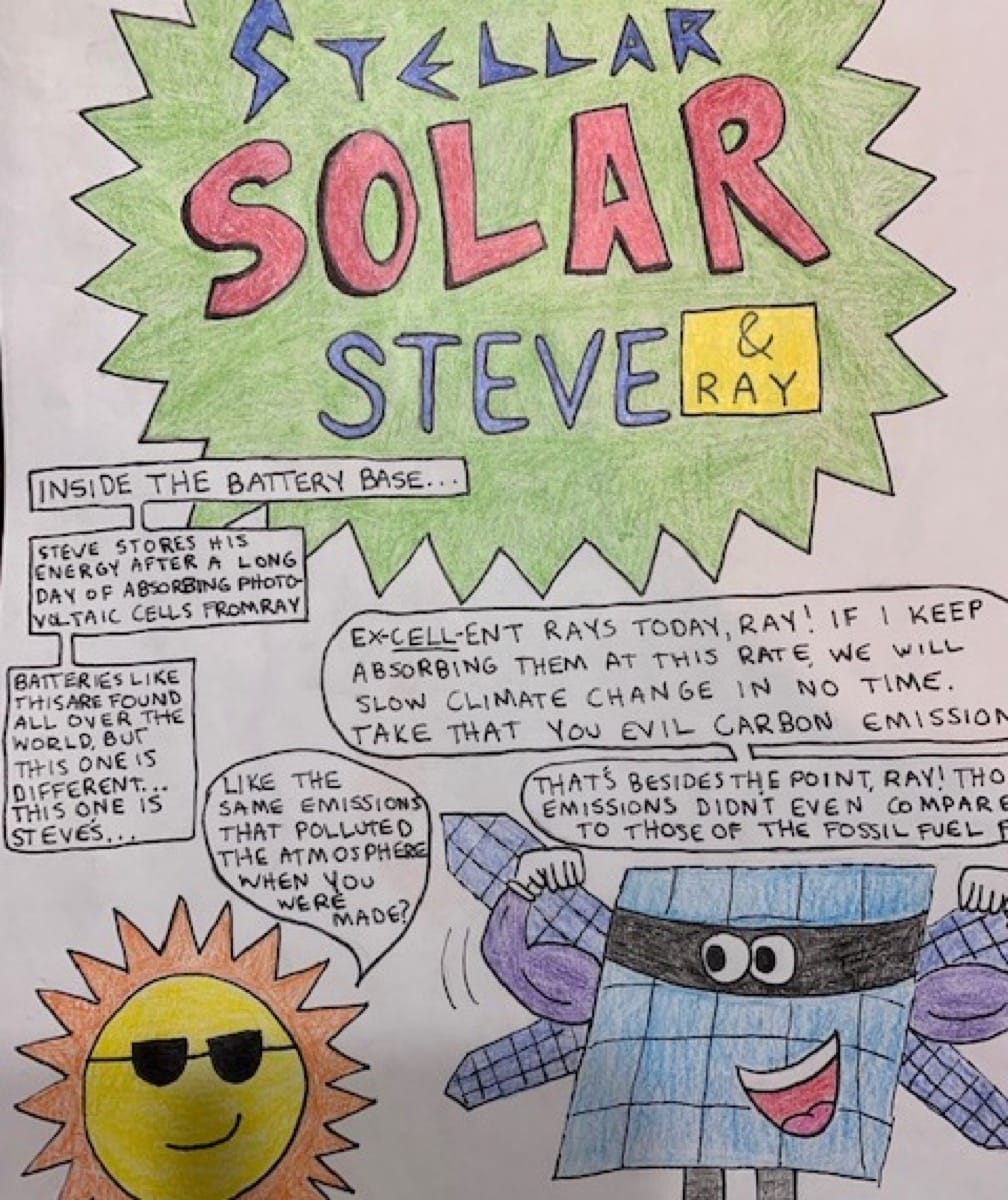 STELLAR
SOLAR
STEVE
&
RAY
INSIDE THE BATTERY BASE...
STEVE STORES HIS
ENERGY AFTER A LONG
DAY OF ABSORBING PHOTO-
VOLTAIC CELLS FROM RAY
BATTERIES LIKE
THIS ARE FOUND
ALL OVER THE
WORLD, BUT
THIS ONE IS
DIFFERENT...
THIS ONE IS
STEVE'S...
EX-CELL-ENT RAYS TODAY, RAY! IF I KEEP
ABSORBING THEM AT THIS RATE, WE WILL
SLOW CLIMATE CHANGE IN NO TIME.
TAKE THAT YOU EVIL CARBON EMISSION
LIKE THE
SAME EMISSIONS
THAT POLLUTED
THE ATMOSPHERE
WHEN YOU
WERE
MADE?
THAT'S BESIDES THE POINT, RAY! THO
EMISSIONS DIDN'T EVEN COMPAR
TO THOSE OF THE FOSSIL FUEL